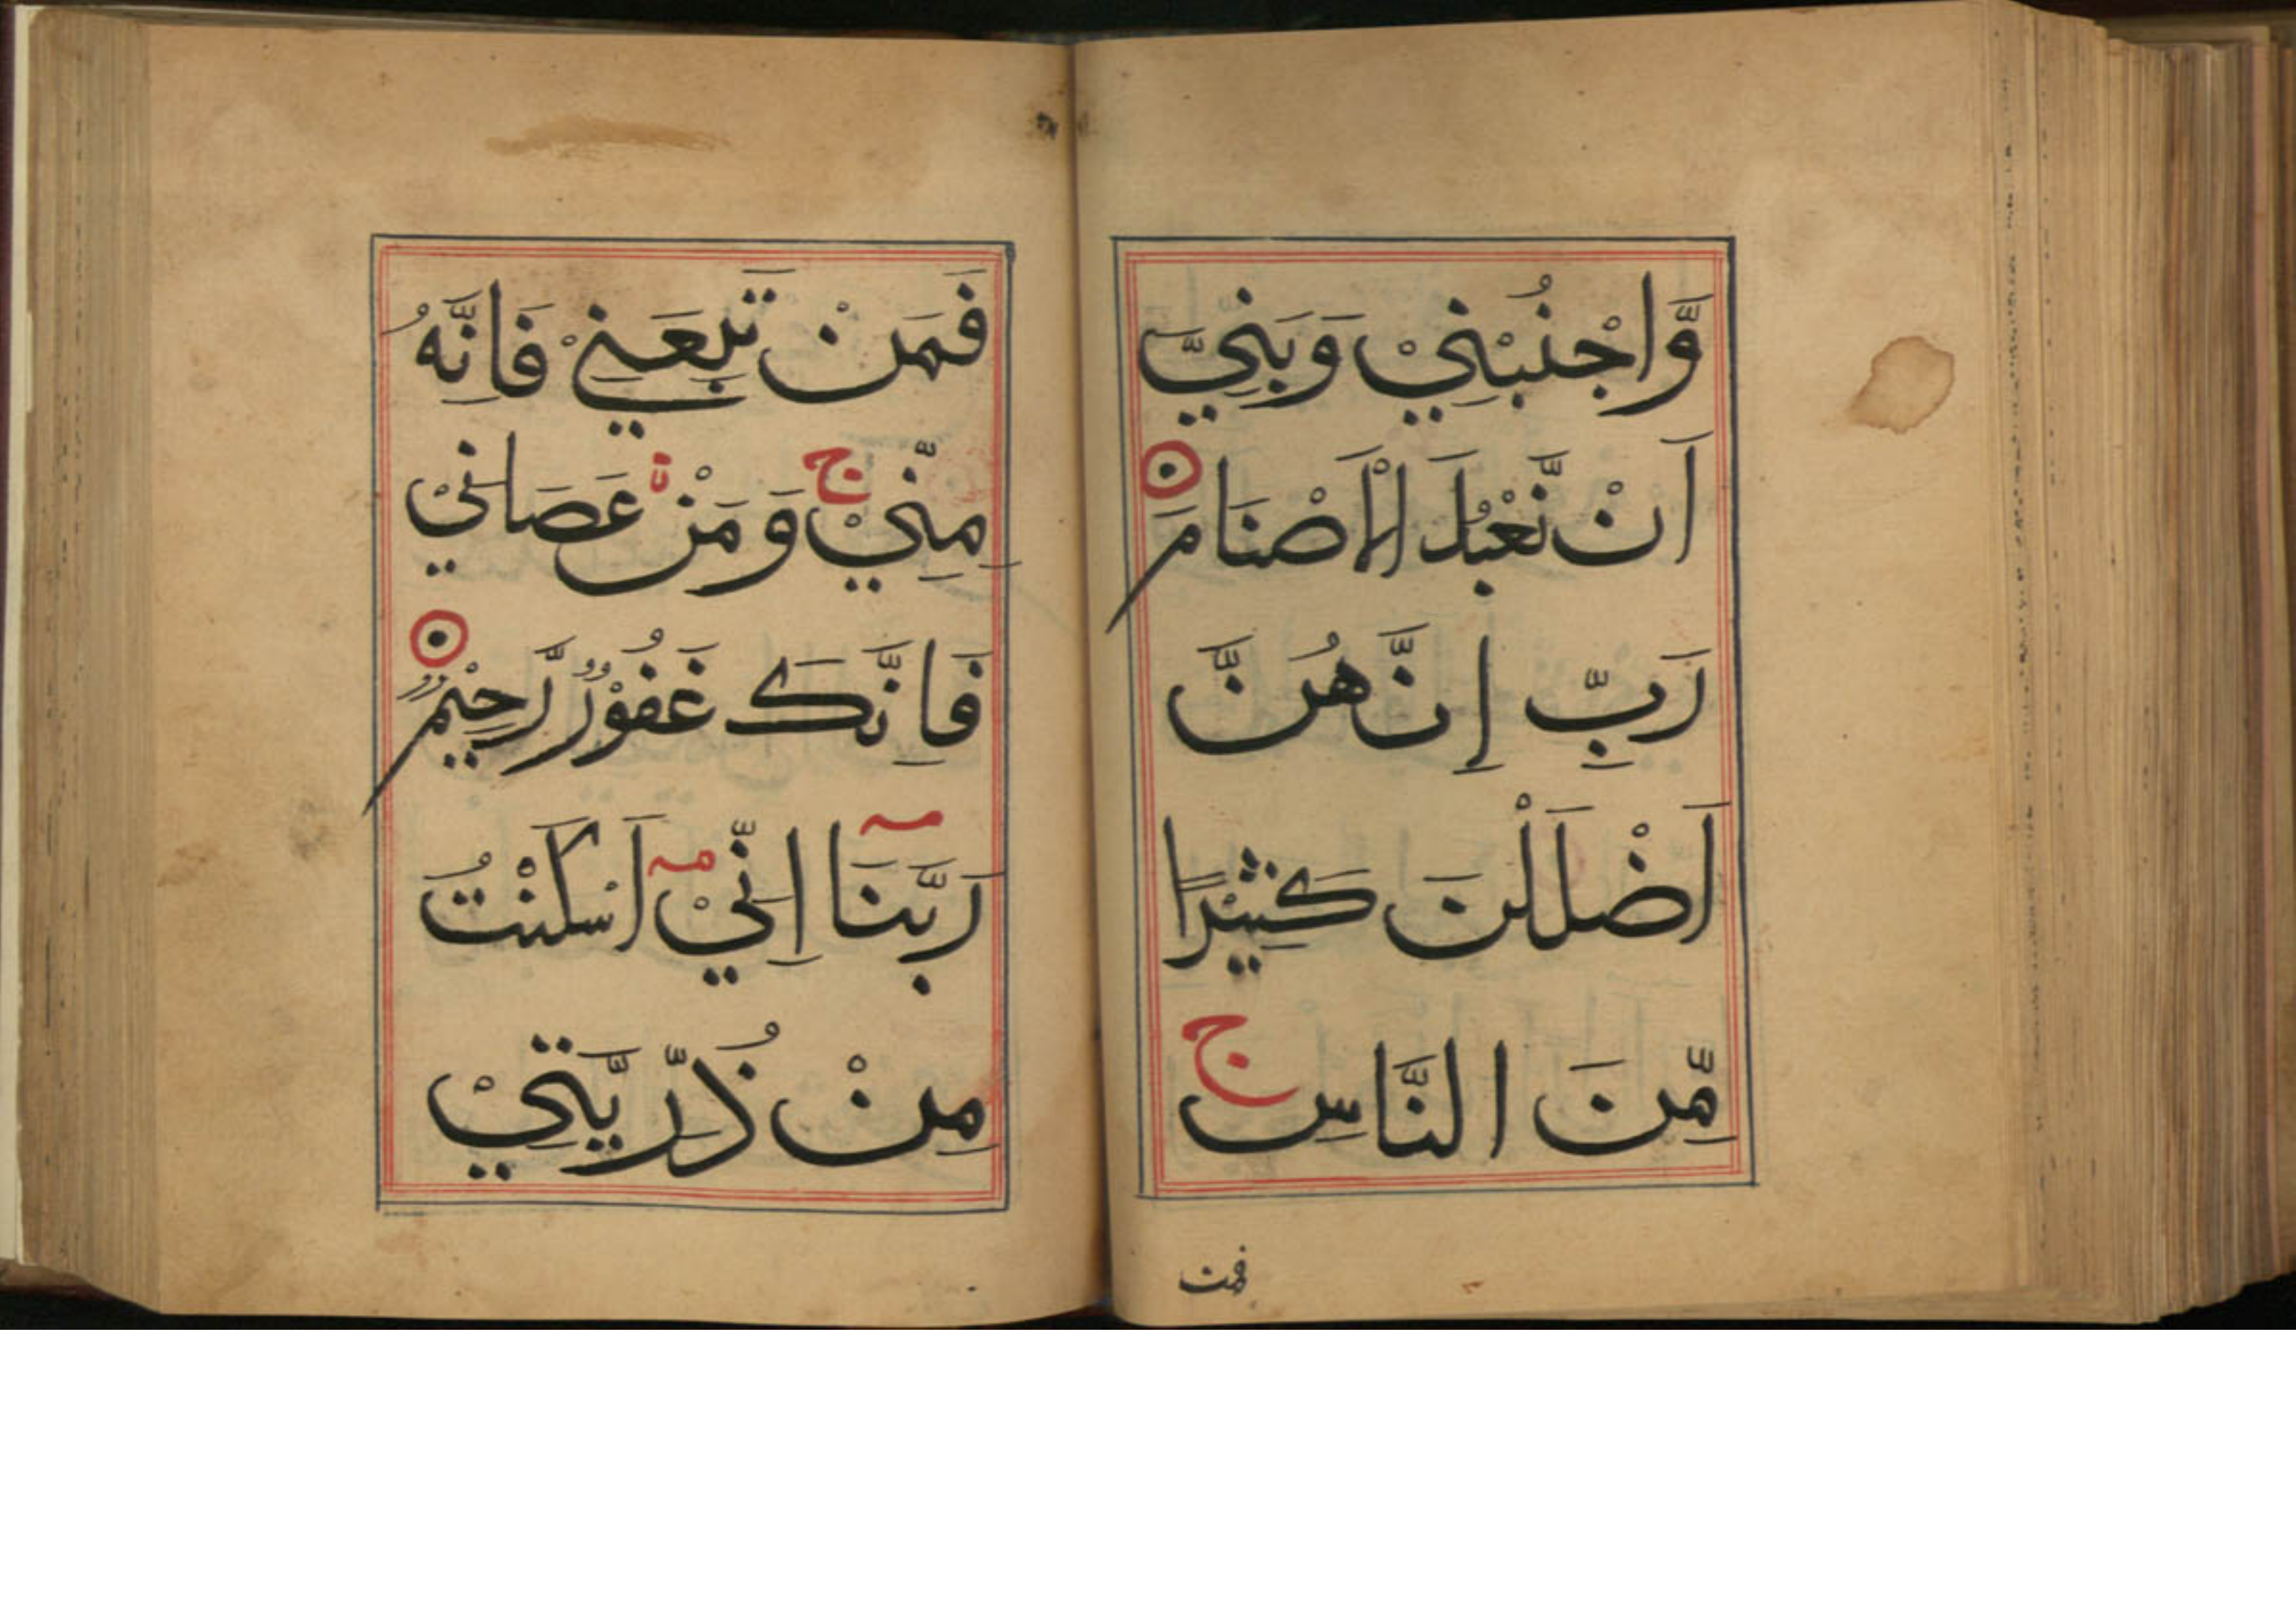 وَّاجْنُبْنِيْ وَبَنِيَّ
اَنْ نَّعْبُدَ الْاَصْنَامَ
رَبِّ اِنَّهُنَّ
اَضْلَلْنَ كَثِيْرًا
مِّنَ النَّاسِ ج
فمن
فَمَنْ تَبِعَنِيْ فَاِنَّهُ
مِنِّيْ ج وَمَنْ عَصَانِيْ
فَاِنَّكَ غَفُوْرٌ رَّحِيْمٌ
رَبَّنَا اِنِّيْ اَسْكَنْتُ
مِنْ ذُرِّيَّتِيْ